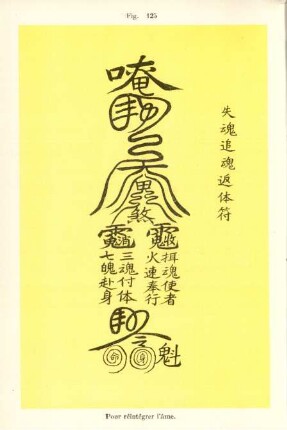 Fig. 125
失魂追魂返体符
唵
煞
魂使者
火速奉行
三魂付体
七魄赴身
魁
Pour réintégrer l'âme.